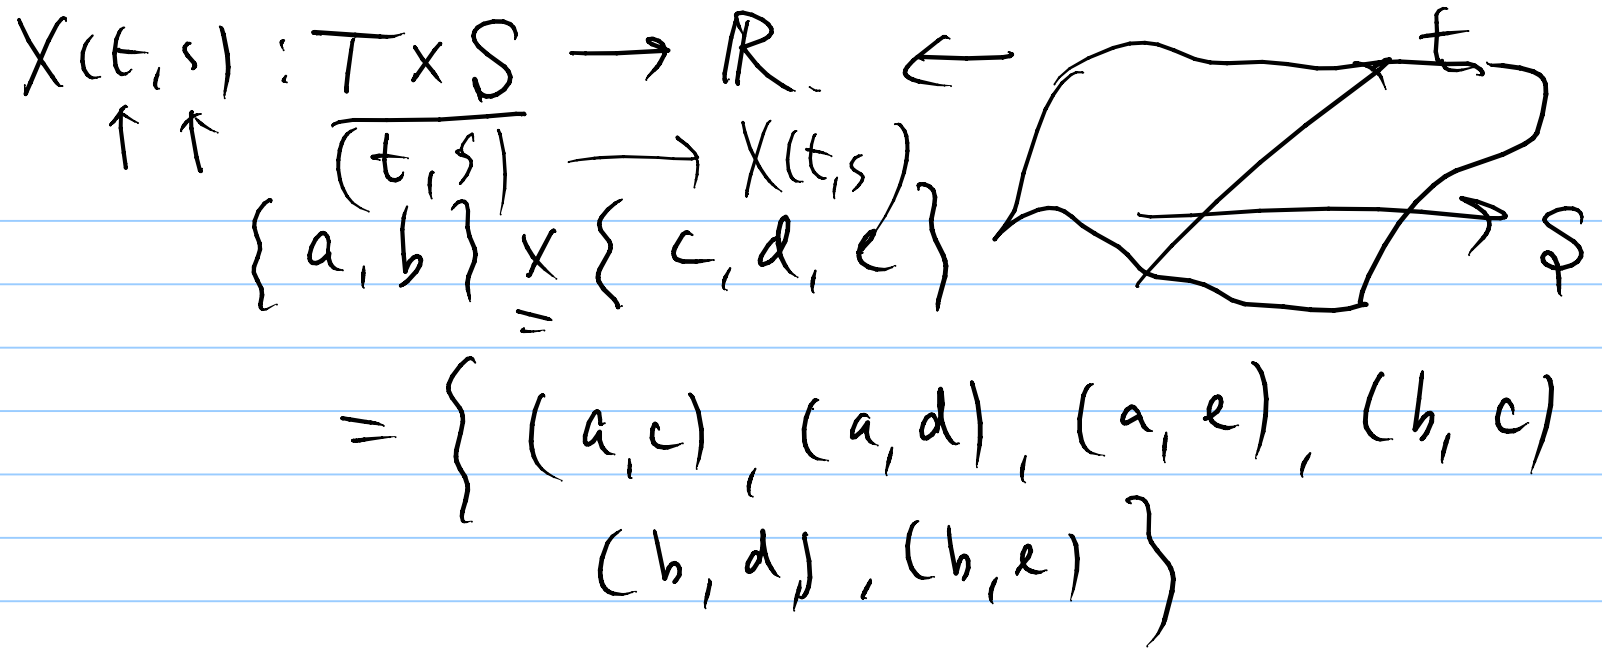 X(t,s) : T x S → R. ← t
↑ ↑ (t,s) → X(t,s)
{a, b} x {c, d, e} S
=
= { (a,c), (a,d), (a,e), (b,c)
(b,d), (b,e) }